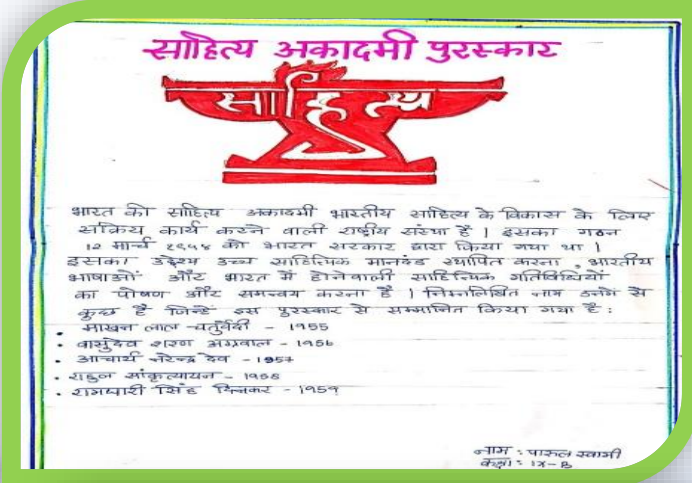 साहित्य अकादमी पुरस्कार
साहित्य
भारत की साहित्य अकादमी भारतीय साहित्य के विकास के लिए
सक्रिय कार्य करने वाली राष्ट्रीय संस्था है | इसका गठन
१२ मार्च १९५४ को भारत सरकार द्वारा किया गया था |
इसका उद्देश्य उच्च साहित्यिक मानदंड स्थापित करना , भारतीय
भाषाओं और भारत में होनेवाली साहित्यिक गतिविधियों
का पोषण और समन्वय करना है | निम्नलिखित नाम उनमे से
कुछ है जिन्हें इस पुरस्कार से सम्मानित किया गया है :
• माखन लाल चतुर्वेदी - 1955
• वासुदेव शरण अग्रवाल - 1956
• आचार्य नरेन्द्र देव - 1957
• राहुल सांकृत्यायन - 1958
• रामधारी सिंह दिनकर - 1959
नाम : पारुल स्वामी
कक्षा : IX-B